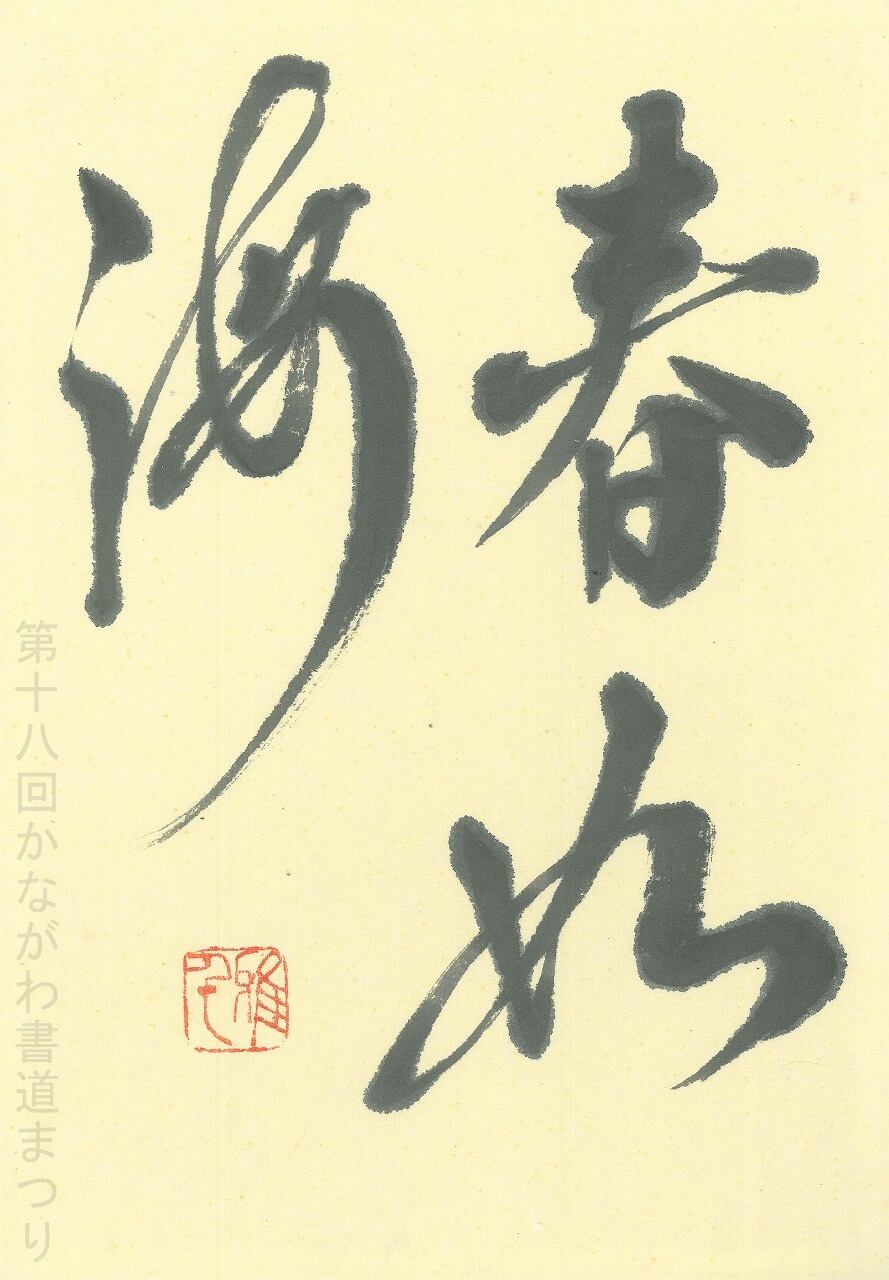 春如
海
第十八回かながわ書道まつり